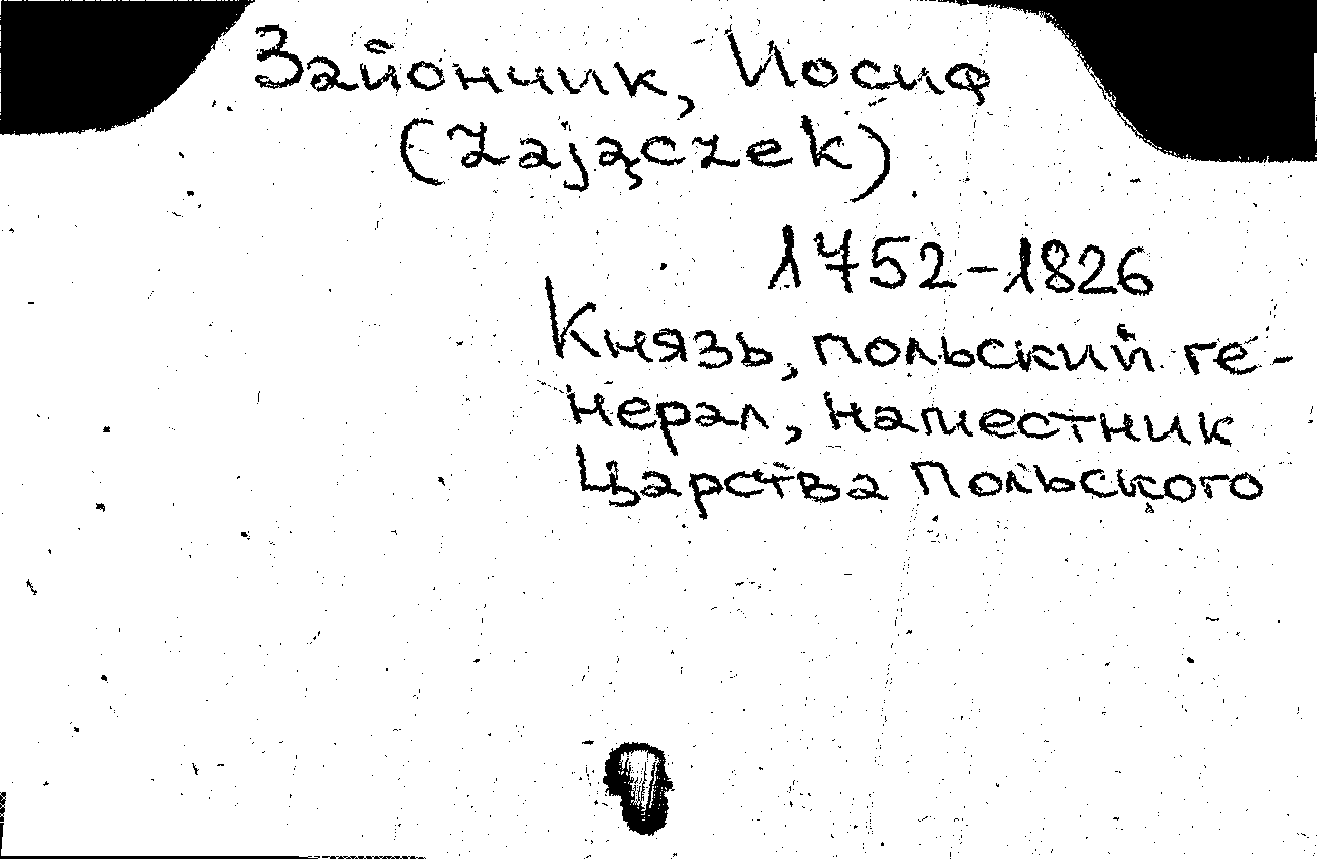 Зайончик, Иосиф
(Zajączek)
1752-1826
Князь, польский ге-
нерал, наместник
Царства Польского